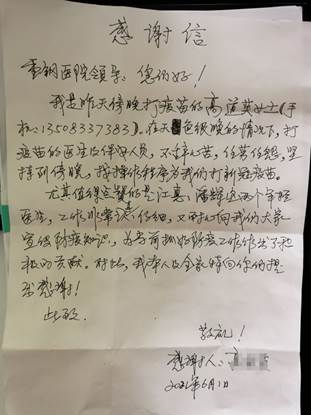 感谢信
重钢医院领导：您们好！
我是昨天傍晚打疫苗的高道英女士（手
机：13508337383）。在天色很晚的情况下，打
疫苗的医生及保健人员，不辞心苦，任劳任怨，坚
持到傍晚，按操作程序为我们打新冠疫苗。
尤其值得点赞的是江熹、潘辉这两个年轻
医生，工作非常认真仔细，又耐心向我们大家
宣传防疫知识，为当前抓好防疫工作作出了积
极的贡献。对此，我本人及全家特向你们提
出感谢！
此致
敬礼！
感谢人：
2021年6月1日